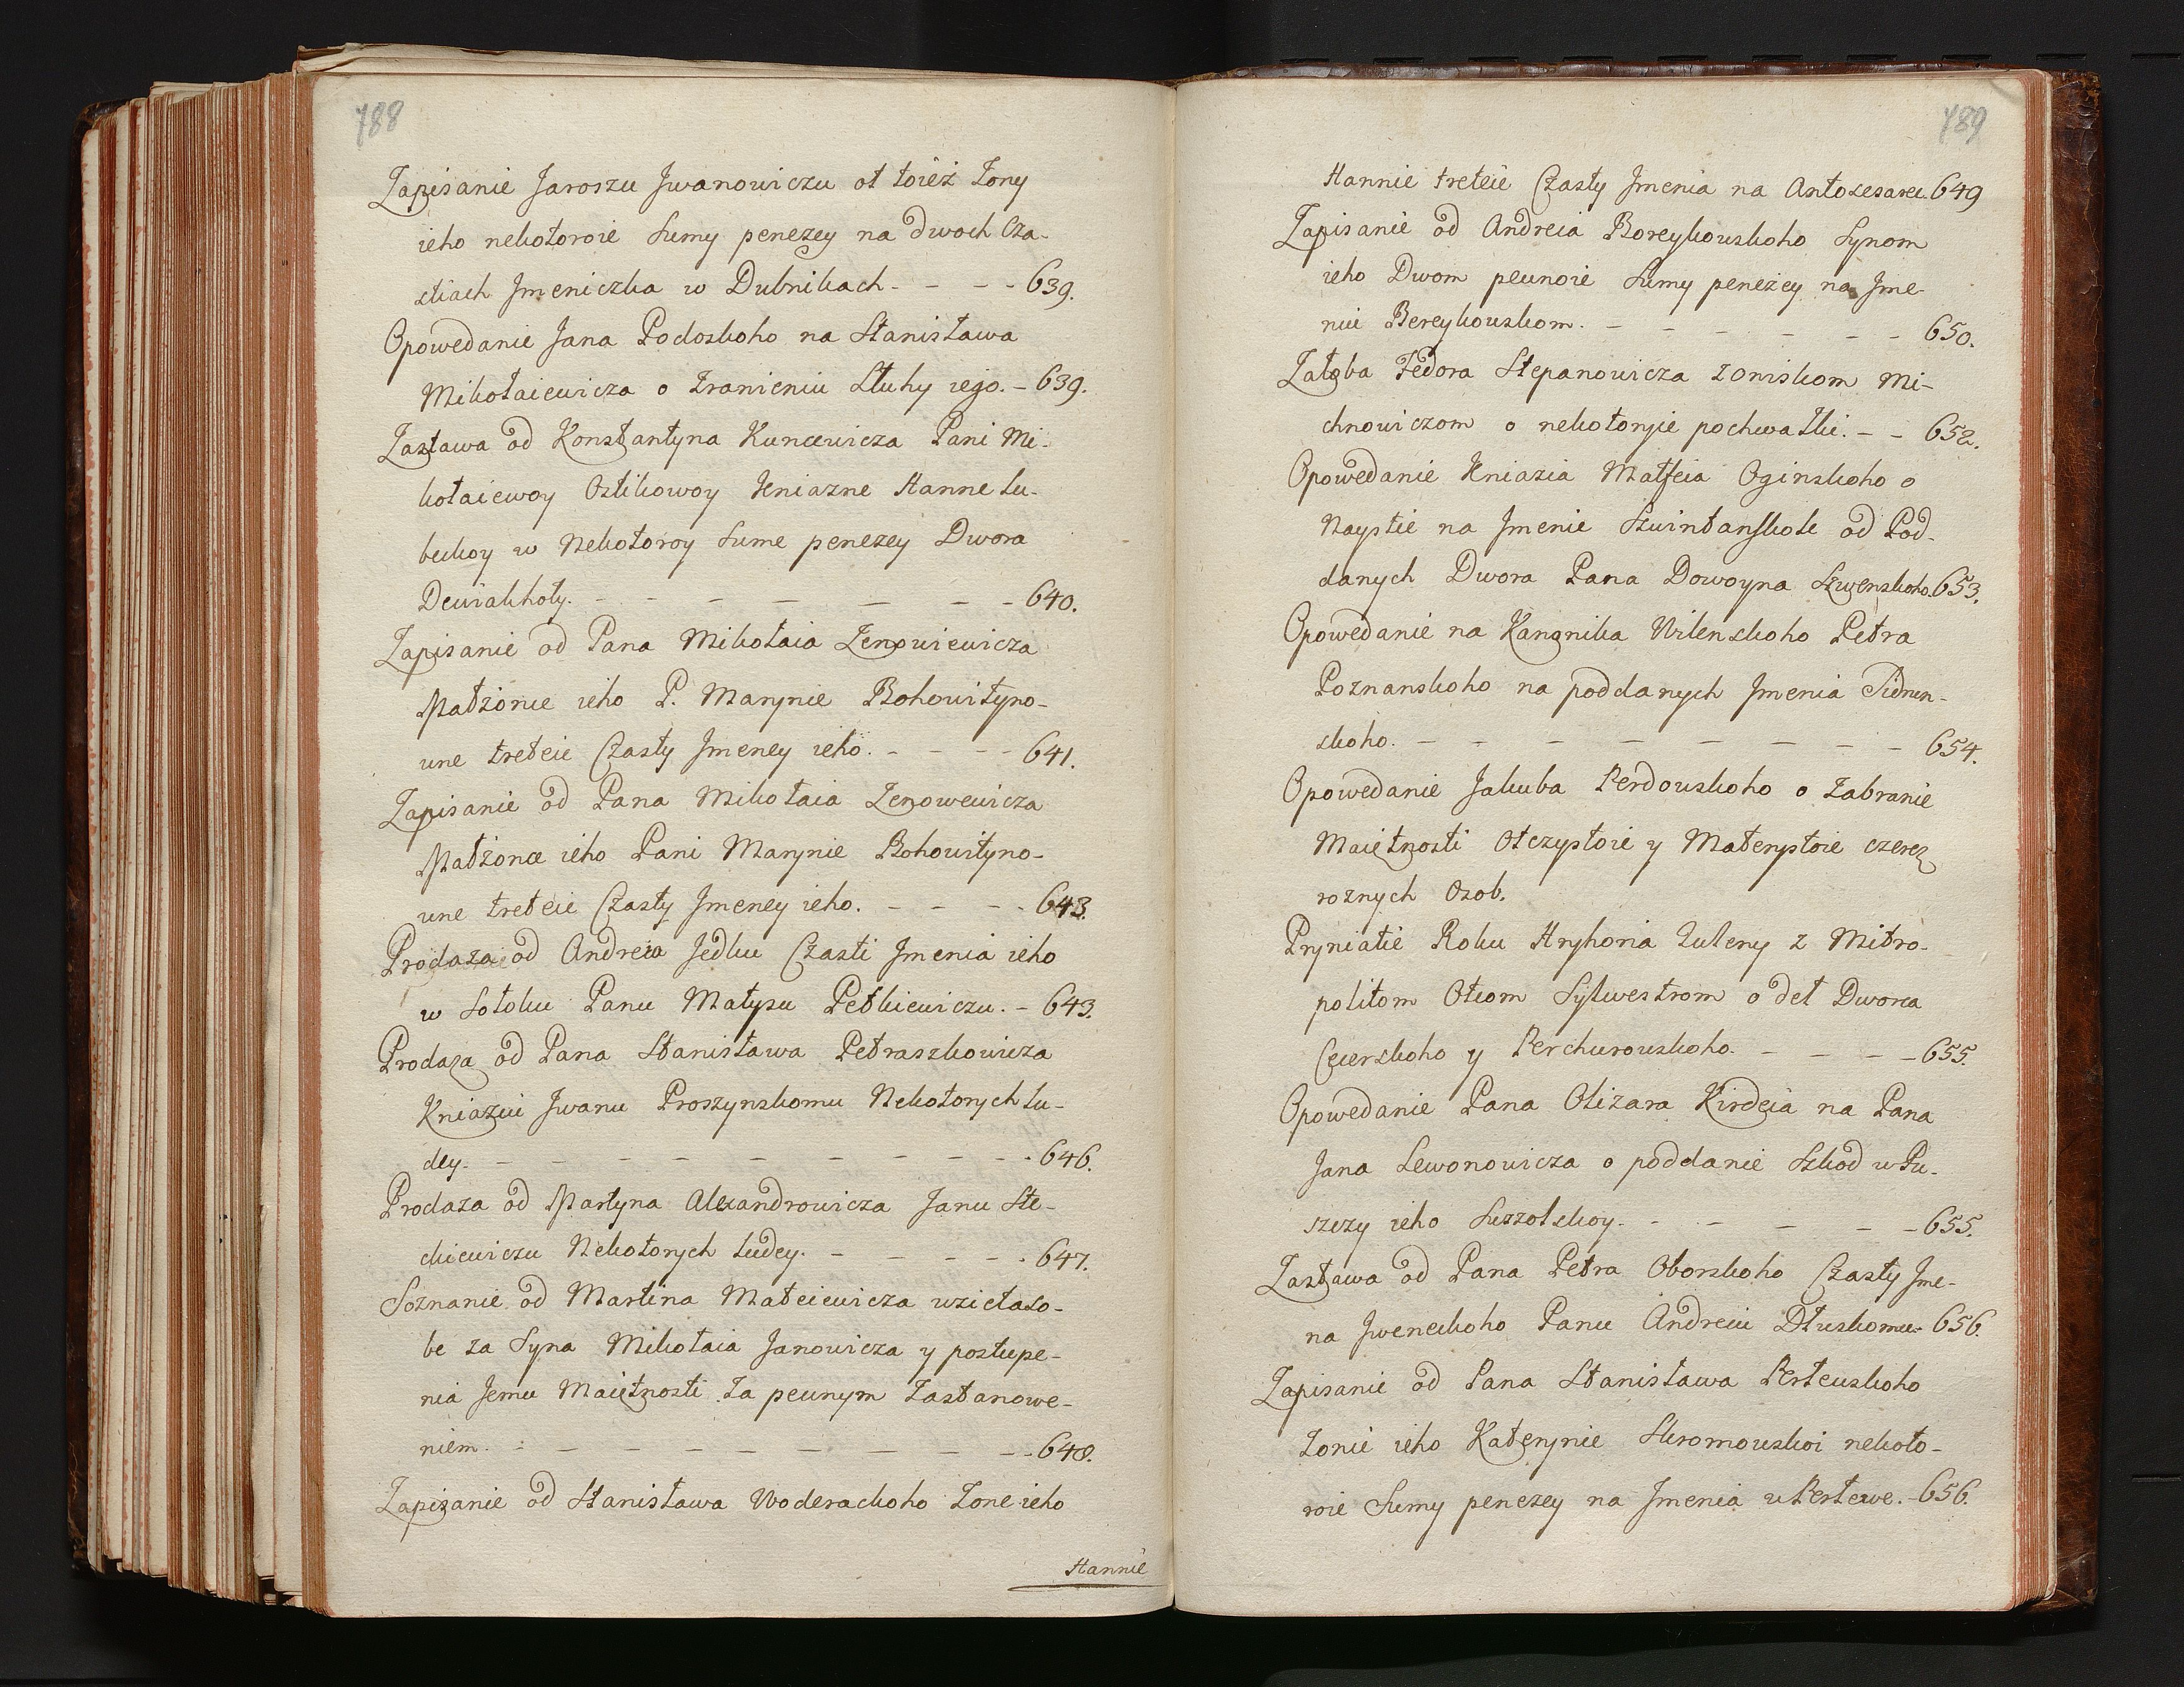 788
Zapisanie Jaroszu Jwanowiczu ot toież Żony
ieho nekotoroie Sumy penezey na dwoch Cza-
stiach Jmeniczka w Dubnikach - - - - 639.
Opowedanie Jana Podoskoho na Stanisława
Mikołaiewicza o Zranieniu Sługy iego. - 639.
Zastawa od Konstantyna Kuncewicza Pani Mi-
kołaiewoy Ostikowoy Kniazne Hanne Lu-
beckoy w Nekotoroy Sume penezey Dwora
Dewiakhoły. - - - - - - - 640.
Zapisanie od Pana Mikołaia Zenowiewicza
Małżonce ieho P. Marynie Bohowityno-
wne treteie Czasty Jmeney ieho. - - - - 641.
Zapisanie od Pana Mikołaia Zenowewicza
Małżonce ieho Pani Marynie Bohowityno-
wne treteie Czasty Jmeney ieho. - - - - 643.
Prodaża od Andreia Jedku Czasti Jmenia ieho
w Sotoku Panu Matysu Petkiewiczu. - 643.
Prodaża od Pana Stanisława Petraszkowicza
Kniaziu Jwanu Proszynskomu Nekotorych Lu-
dey. - - - - - - - - - - 646.
Prodaża od Martyna Alexandrowicza Janu Ste-
ckiewiczu Nekotorych Ludey. - - - - - 647.
Soznanie od Martina Mateiewicza wzieta so-
be za Syna Mikołaia Janowicza y postupe-
nia Jemu Maiętnosti Za pewnym Zastanowe-
niem. - - - - - - - - - - 648.
Zapisanie od Stanisława Woderackoho Żone ieho
Hannie
789
Hannie treteie Czasty Jmenia na Antolesarec. 649
Zapisanie od Andreia Boreykowskoho Synom
ieho Dwom pewnoie Sumy penezey na Jme-
nii Bereykowskom. - - - - - - 650.
Żałoba Fedora Stepanowicza Zomiskom Mi-
chnowiczom o nekotoryie pochwałki. - - 652.
Opowedanie Kniazia Matfeia Oginskoho o
Naystie na Jmenie Szwintanskole od Pod-
danych Dwora Pana Dowoyna Szwenskoho. 653.
Opowedanie na Kanonika Wilenskoho Petra
Poznanskoho na poddanych Jmenia Sidren-
skoho. - - - - - - - - - 654.
Opowedanie Jakuba Perdowskoho o Zabranie
Maiętnosti Otczystoie y Materystoie czerez
roznych Osob.
Pryniatie Roku Hryhoria Zuleny z Mitro-
politom Otcom Sylwestrom o deł Dworca
Ceerskoho y Perchurowskoho. - - - - 655.
Opowedanie Pana Olizara Kirdeia na Pana
Jana Lewonowicza o poddanie Szkod w Pu-
szczy ieho Suzzolskoy. - - - - - 655.
Zastawa od Pana Petra Oborskoho Czasty Jme-
na Jweneckoho Panu Andreiu Dłuskomu. 656.
Zapisanie od Pana Stanisława Perteuskoho
Żonie ieho Katerynie Skromowskoi nekoto-
roie Sumy penezey na Jmenia u Pertewe. - 656.